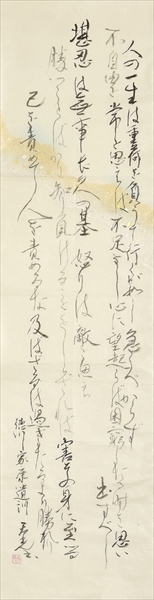 人の一生は重荷を負うて行くが如し 急ぐべからず
不自由を常と思えば不足なし 心に望起らば困窮したる時を思い
出すべし
堪忍は無事長久の基 怒りは敵と思え
勝つ事ばかり知りて負ける事を知らざれば 害其の身に至る
己を責めて人を責めるな 及ばざるは過ぎたるより勝れり
徳川家康遺訓